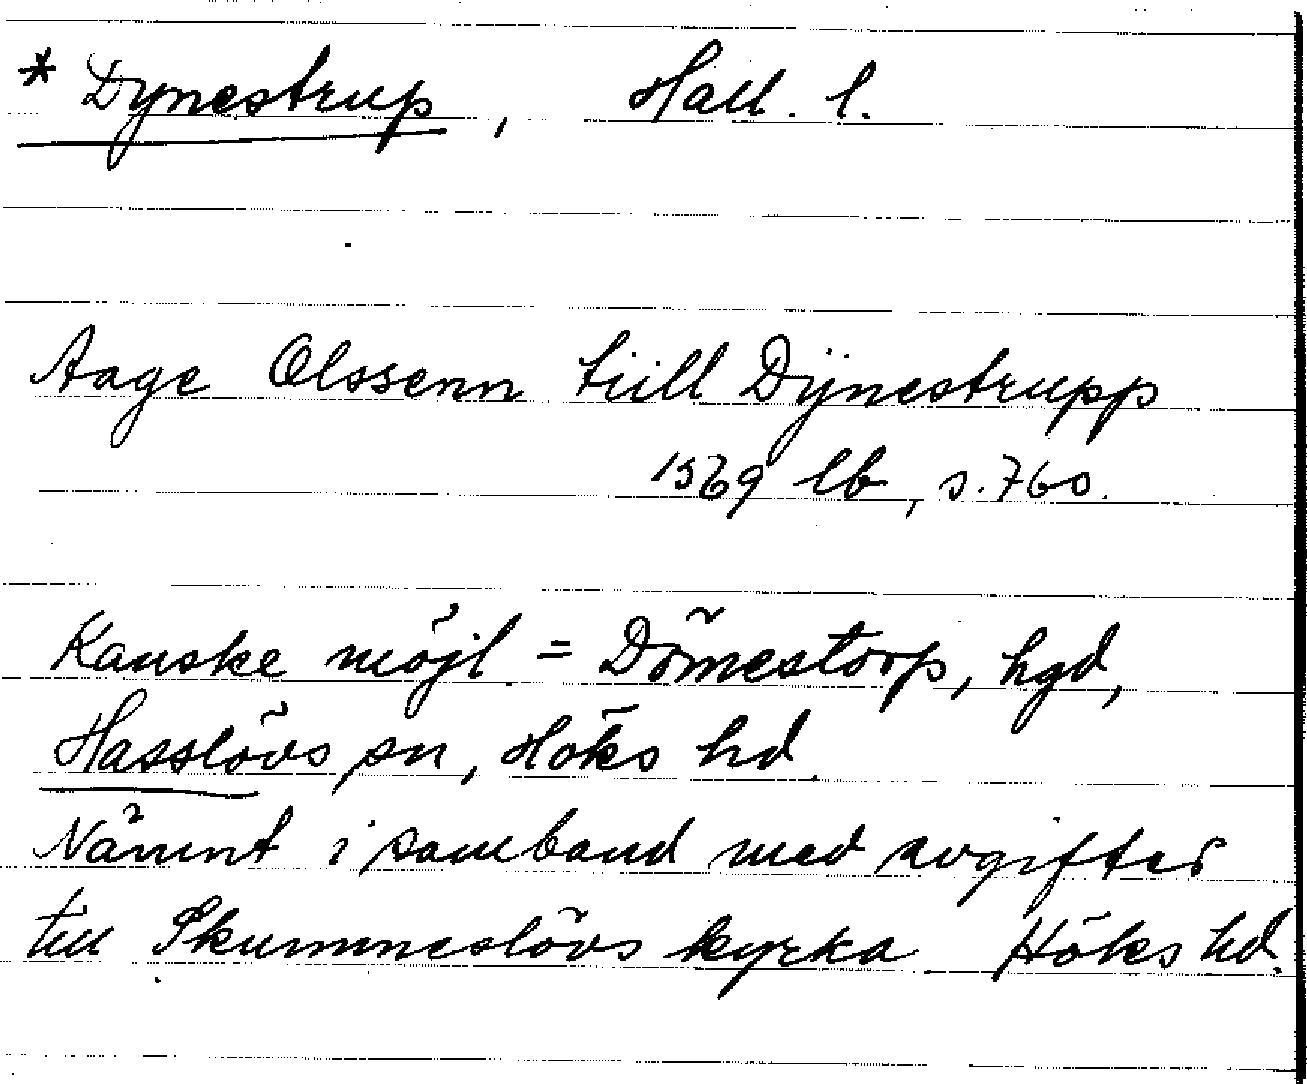 * Dynestrup, Hall. l.
Aage Olssenn tiill Dÿnestrupp
1569 lb, s. 760.
Kanske möjl = Dömestorp, hgd,
Hasslövs sn, Höks hd.
Nämnt i samband med avgifter
till Skummeslövs kyrka Höks hd.